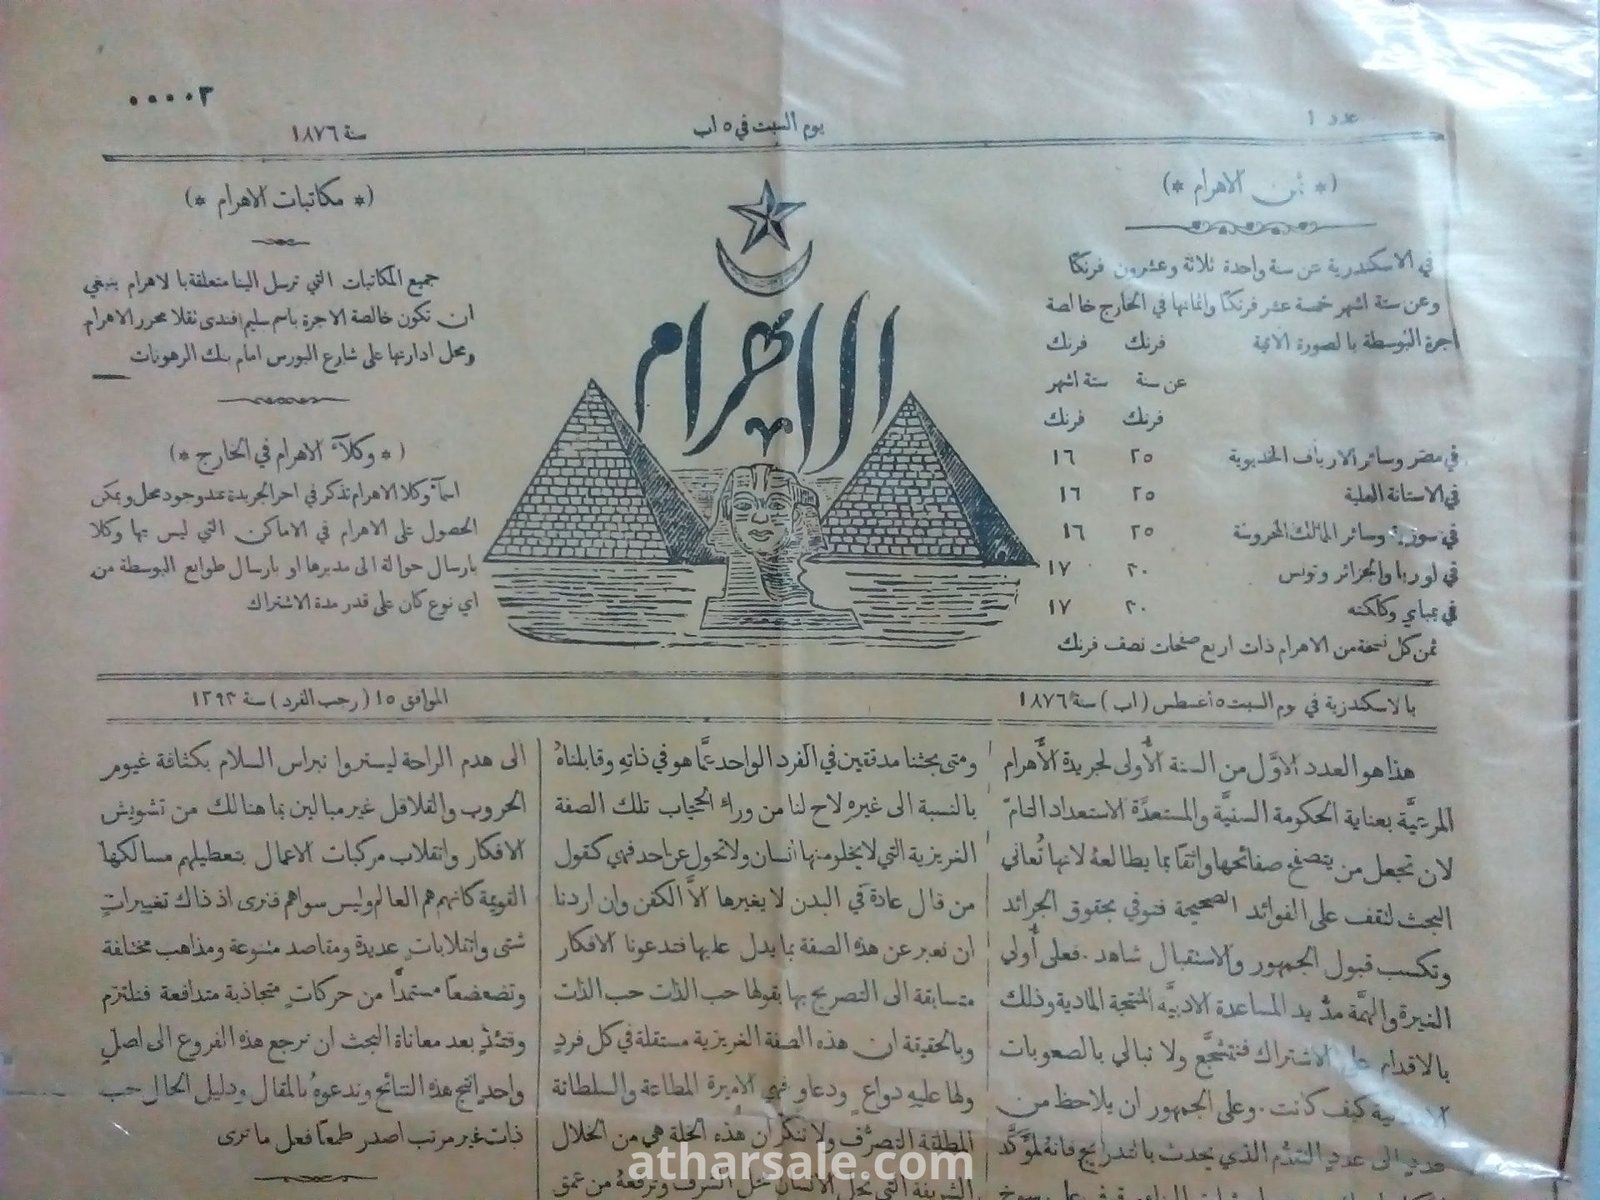 ٠٠٠٠٢
عدد ١
يوم السبت في ٥ اب
سنة ١٨٧٦
(* ثمن الاهرام *)
في الاسكندرية عن سنة واحدة ثلاثة وعشرون فرنكًا
وعن ستة اشهر خمسة عشر فرنكًا واثمانها في الخارج خالصة
اجرة البوسطة بالصورة الاتية فرنك فرنك
عن سنة ستة اشهر
فرنك فرنك
في مصر وسائر الارياف الخديوية ٢٥ ١٦
في الاستانة العلية ٢٥ ١٦
في سورية وسائر الممالك المحروسة ٢٥ ١٦
في اوربا والجزائر وتونس ٢٠ ١٧
في بمباي وكلكته ٢٠ ١٧
ثمن كل نسخة من الاهرام ذات اربع صفحات نصف فرنك
الاهرام
(* مكاتبات الاهرام *)
جميع المكاتبات التي ترسل الينا متعلقة بالاهرام ينبغي
ان تكون خالصة الاجرة باسم سليم افندى نقلا محرر الاهرام
ومحل ادارتها على شارع البورس امام بنك الرهونات
(* وكلاء الاهرام في الخارج *)
اسماء وكلا الاهرام تذكر في اخر الجريدة عند وجود محل ويمكن
الحصول على الاهرام في الاماكن التي ليس بها وكلا
بارسال حوالة الى مديرها او بارسال طوابع البوسطة من
اي نوع كان على قدر مدة الاشتراك
بالاسكندرية في يوم السبت ٥ اغسطس (اب) سنة ١٨٧٦
الموافق ١٥ (رجب الفرد) سنة ١٢٩٣
هذا هو العدد الاوَّل من السنة الأُولى لجريدة الأهرام
المرعيَّة بعناية الحكومة السنيَّة والمستعدَّة الاستعداد التامّ
لان تجعل من يتصفح صفائحها واثقًا بما يطالعهُ لانها تُعاني
البحث لتقف على الفوائد الصحيحة فتوفي بحقوق الجرائد
وتكسب قبول الجمهور والاستقبال شاهد. فعلى أُولي
الغيرة والهمَّة مدّ يد المساعدة الادبيَّة المنتجة المادية وذلك
بالاقدام على الاشتراك فنتشجَّع ولا نبالي بالصعوبات
كيف كانت. وعلى الجمهور ان يلاحظ من
عددٍ الى عددٍ التقدُّم الذي يحدث بالتدرايج فانهُ لمؤَكَّد
ومتى بحثنا مدققين في الفرد الواحد عمَّا هو في ذاتهِ وقابلناهُ
بالنسبة الى غيره لاح لنا من وراء الحجاب تلك الصفة
الغريزية التي لا يخلو منها انسان ولا تحول عن احد فهي كقول
من قال عادة في البدن لا يغيرها الاَّ الكفن وان اردنا
ان نعبر عن هذه الصفة بما يدل عليها فتدعونا الافكار
متسابقة الى التصريح بها بقولها حب الذات حب الذات
وبالحقيقة ان هذه الصفة الغريزية مستقلة في كل فردٍ
ولها عليهِ دواعٍ ودعاوٍ فهي الاميرة المطاعة والسلطانة
المطلقة التصرُّف ولا ننكر ان هذه الخلة هي من الخلال
الشريفة التي تحل الانسان محل الشرف وترفعهُ من عمق
الى هدم الراحة ليستروا نبراس السلام بكثافة غيوم
الحروب والقلاقل غير مبالين بما هنالك من تشويش
الافكار وانقلاب مركبات الاعمال بتعطيلهم مسالكها
القويمة كانهم هم العالم وليس سواهم فنرى اذ ذاك تغييراتٍ
شتى وانقلاباتٍ عديدة ومقاصد متنوعة ومذاهب مختلفة
وتضعضعًا مستمدًّا من حركاتٍ متجاذبة متدافعة فنلتزم
وقتئذٍ بعد معاناة البحث ان نرجع هذه الفروع الى اصلٍ
واحد انتج هذه النتائج وندعوهُ بالمقال ودليل الحال حب
ذات غير مرتب اصدر طمعًا فعل ما نرى
atharsale.com